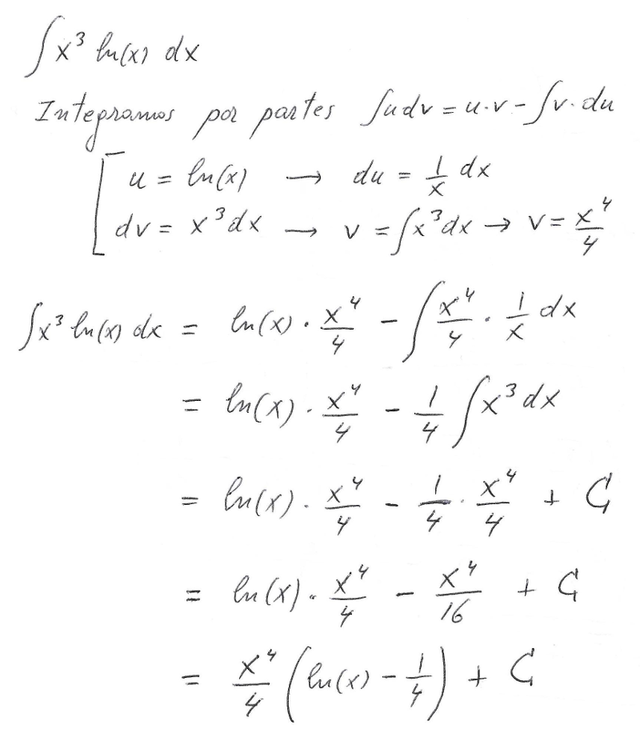 ∫x³ ln(x) dx
Integramos por partes ∫udv = u·v - ∫v·du
u = ln(x) → du = 1/x dx
dv = x³dx → v = ∫x³dx → v = x⁴/4
∫x³ ln(x) dx = ln(x) · x⁴/4 - ∫x⁴/4 · 1/x dx
= ln(x) · x⁴/4 - 1/4 ∫x³dx
= ln(x) · x⁴/4 - 1/4 · x⁴/4 + C
= ln(x) · x⁴/4 - x⁴/16 + C
= x⁴/4 (ln(x) - 1/4) + C